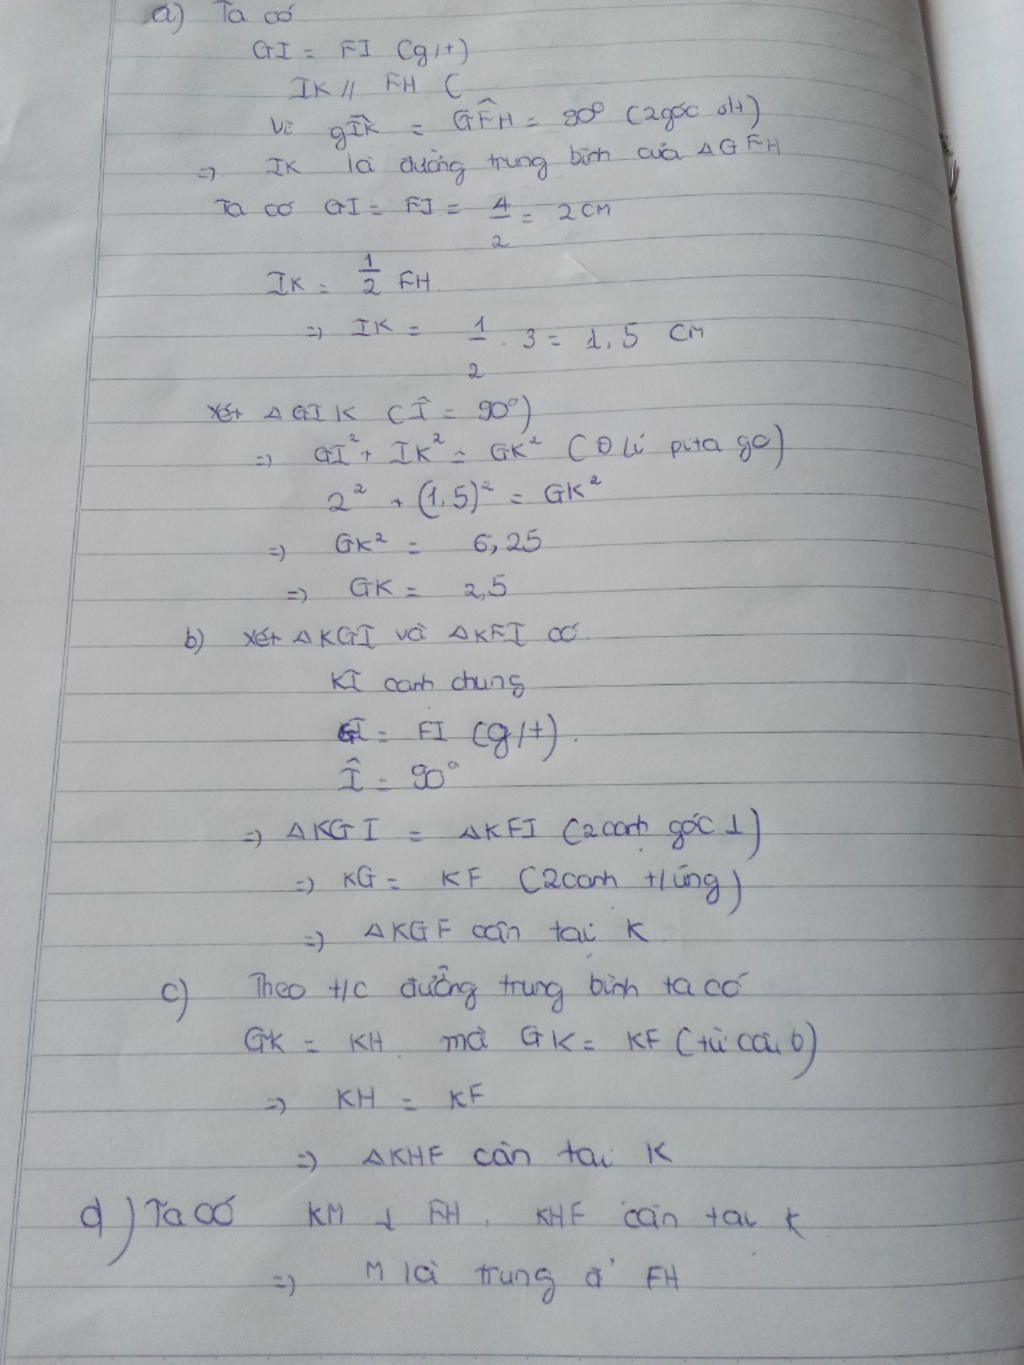 a) Ta có
GI = FI (g/t)
IK // FH (
Vì gIK̂ = GF̂H = 90° (2góc đ/t)
=> IK là đường trung bình của ΔGFH
Ta có GI = FI = 4/2 = 2 CM
IK = 1/2 FH
=> IK = 1/2 . 3 = 1,5 CM
Xét ΔGIK (Î = 90°)
=> GI² + IK² = GK² (Đ Lí pita go)
2² + (1,5)² = GK²
=> GK² = 6,25
=> GK = 2,5
b) Xét ΔKGI và ΔKFI có
KI canh chung
GI = FI (g/t).
Î = 90°
=> ΔKGI = ΔKFI (2canh góc ⊥)
=> KG = KF (2canh t/ứng)
=> ΔKGF cân tai K
c) Theo t/c đường trung bình ta có
GK = KH mà GK = KF (từ câu b)
=> KH = KF
=> ΔKHF cân tai K
d) Ta có KM ⊥ FH, KHF cân tai K
=> M là trung đ' FH